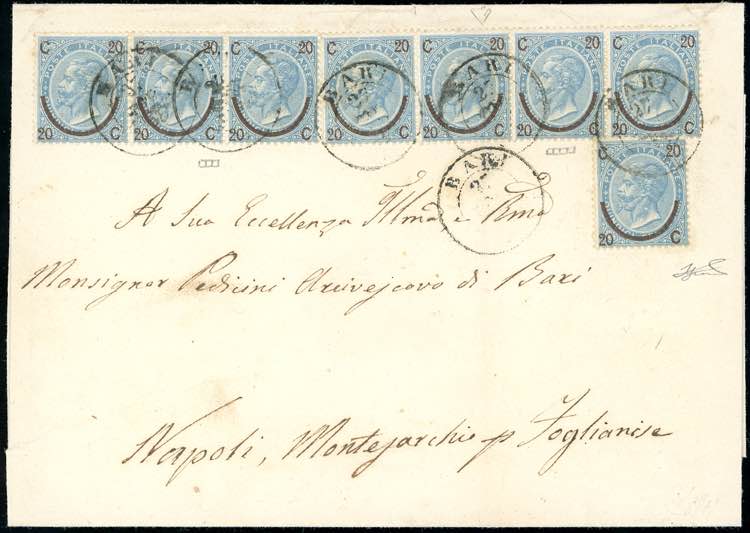 C 20 C 20 C 20 C 20 C 20 C 20 C 20
POSTE ITALIANE POSTE ITALIANE POSTE ITALIANE POSTE ITALIANE POSTE ITALIANE POSTE ITALIANE POSTE ITALIANE
20 C 20 C 20 C 20 C 20 C 20 C 20 C
BARI BARI BARI BARI BARI
C 20
POSTE ITALIANE
20 C
BARI
A Sua Eccellenza Illma e Rma
Monsignor Pedicini Arcivescovo di Bari
Napoli, Montesarchio p Foglianise